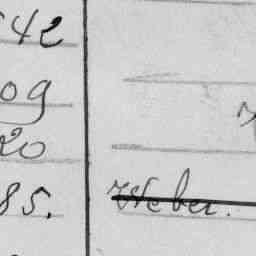 42
09
20
85. Weber.